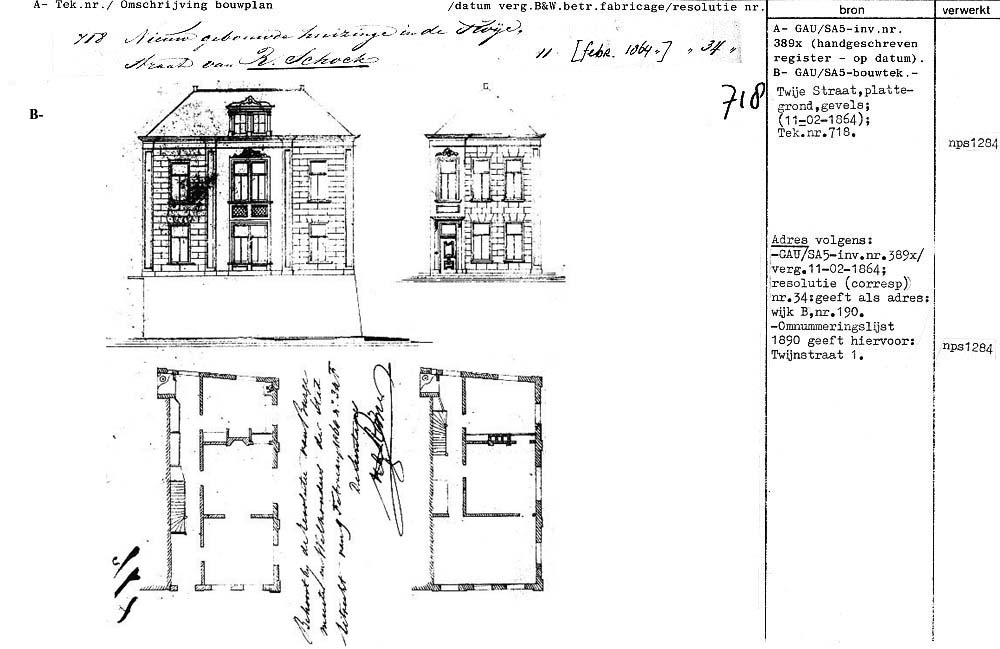 A- Tek.nr./ Omschrijving bouwplan /datum verg.B&W.betr.fabricage/resolutie nr.
bron
verwerkt
718 Nieuw gebouwde huizinge in de Twije
Straat van R. Schock
11 [febr. 1864.] " 34 "
718
B-
A- GAU/SA5-inv.nr.
389x (handgeschreven
register - op datum).
B- GAU/SA5-bouwtek.-
Twije Straat,platte-
grond,gevels;
(11-02-1864);
Tek.nr.718.
nps1284
Adres volgens:
-GAU/SA5-inv.nr.389x/
verg.11-02-1864;
resolutie (corresp)
nr.34:geeft als adres:
wijk B,nr.190.
-Omnummeringslijst
1890 geeft hiervoor:
Twijnstraat 1.
nps1284
Behoort bij de resolutie van Burge
meester en Wethouders der stad
Utrecht
De Secretaris